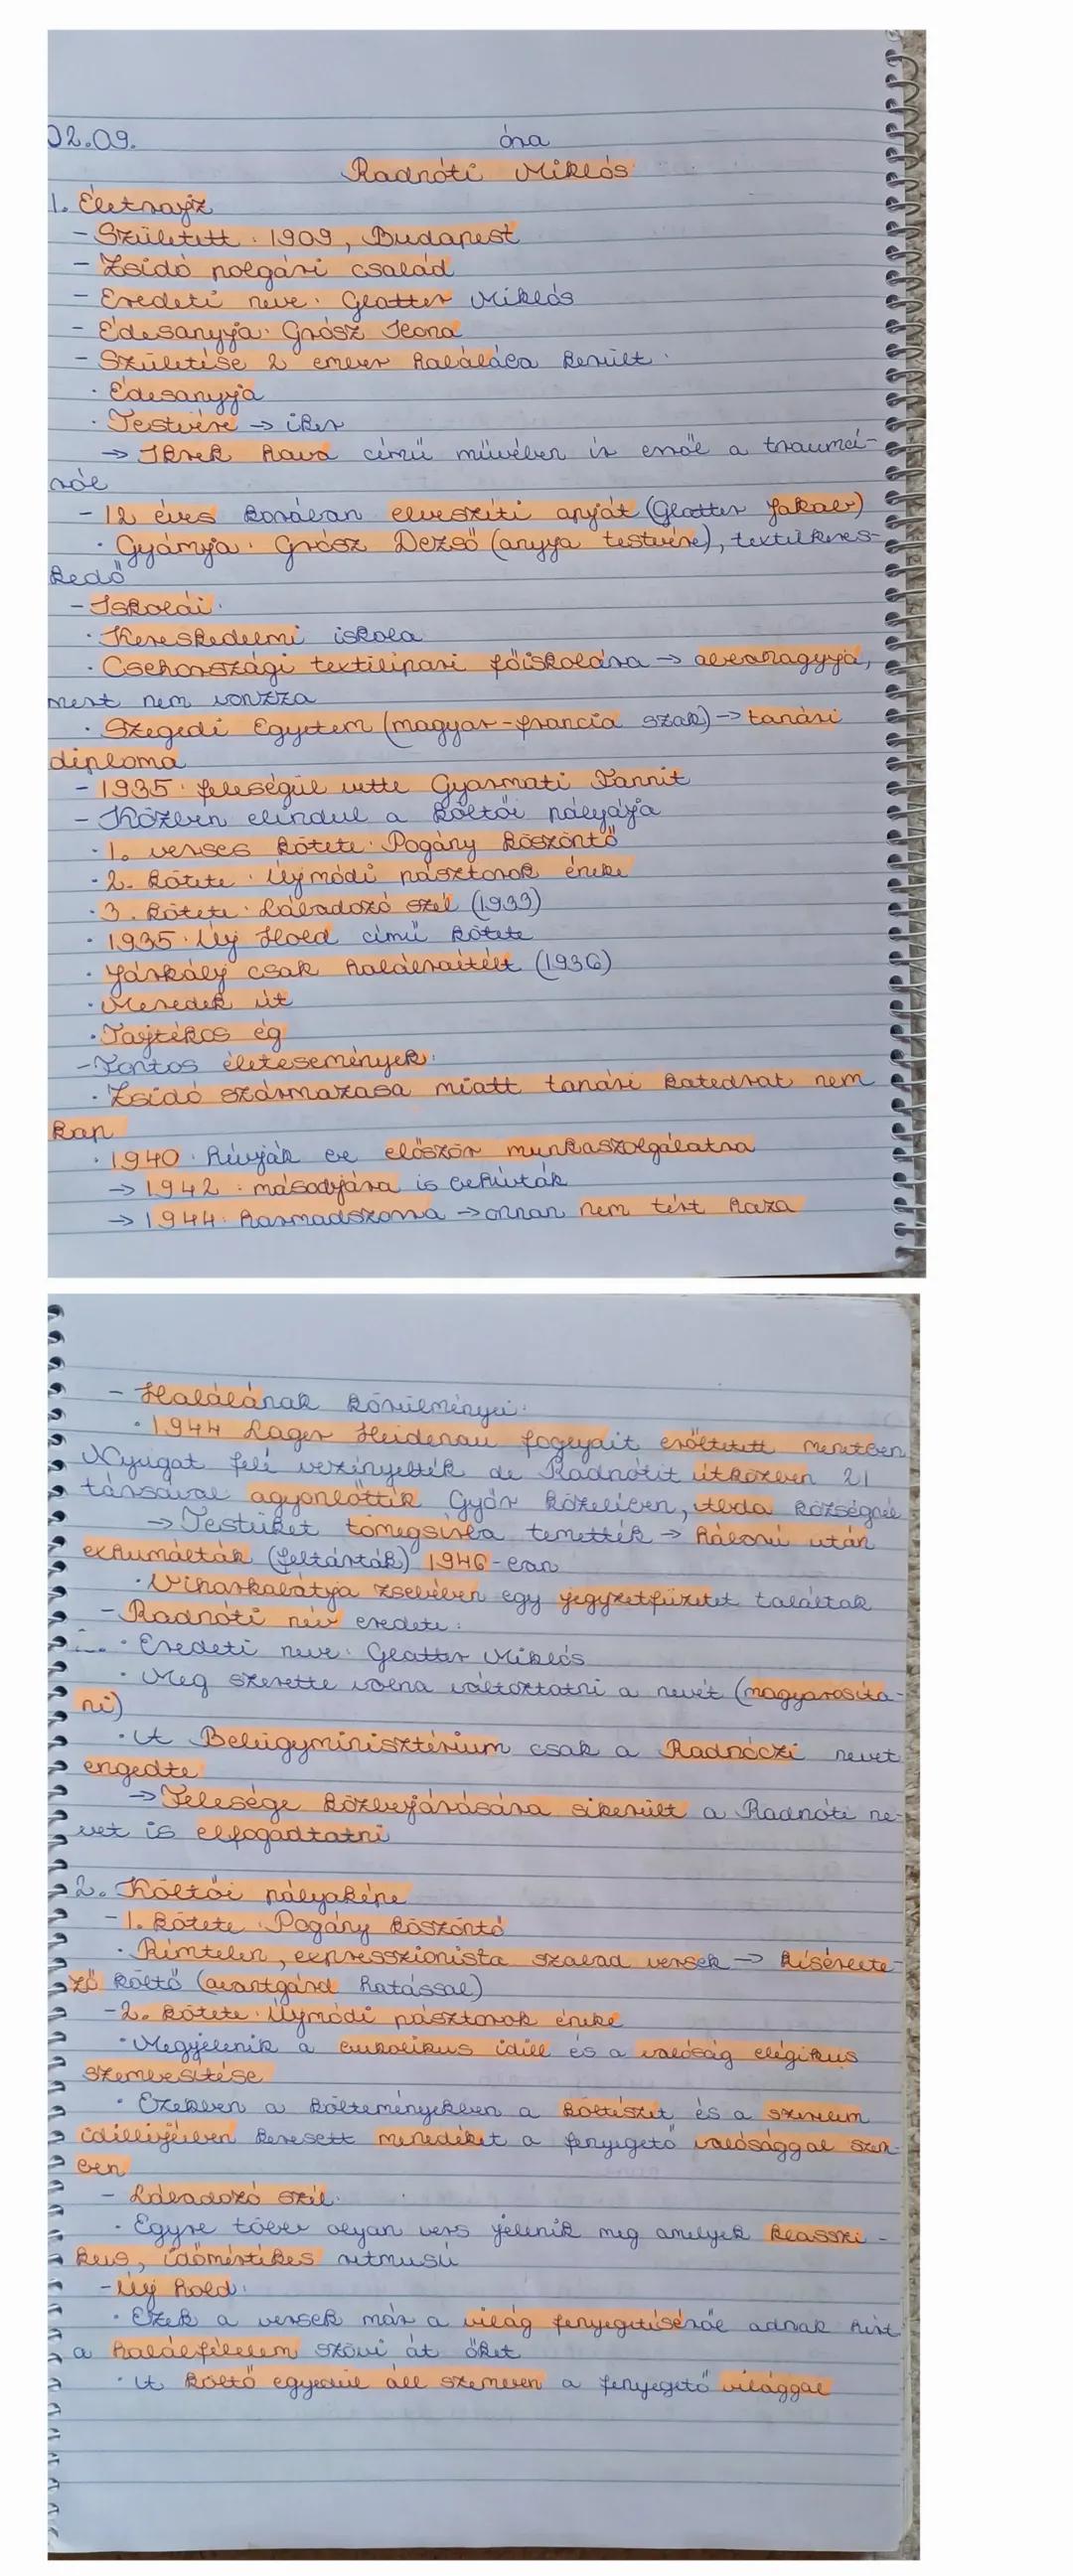 02.09. óra
Radnóti Miklós
1. Életrajz
- Született: 1909, Budapest
- Zsidó polgári család
- Eredeti neve: Glatter Miklós
- Édesanyja: Grósz Ilona
- Születése 2 ember halálába került:
· Édesanyja
· Testvére → iker
→ Ikrek hava című művében ír erről a traumá-
ról
- 12 éves korában elveszíti apját (Glatter Jakab)
· Gyámja: Grósz Dezső (anyja testvére), textilkeres-
kedő
- Iskolái:
· Kereskedelmi iskola
· Csehországi textilipari főiskolára → abbahagyja,
mert nem vonzza
· Szegedi Egyetem (magyar-francia szak) → tanári
diploma
- 1935: feleségül vette Gyarmati Fannit
- Közben elindul a költői pályája
· 1. verses kötete: Pogány köszöntő
· 2. kötete: Újmódi pásztorok éneke
· 3. kötete: Lábadozó szél (1933)
· 1935: Új Hold című kötete
· Járkálj csak halálraítélt (1936)
· Meredek út
· Tajtékos ég
- Fontos életesemények:
· Zsidó származása miatt tanári katedrát nem
kap
· 1940: hívják be először munkaszolgálatra
→ 1942: másodjára is behívták
→ 1944: harmadszorra → onnan nem tért haza
- Halálának körülményei:
· 1944 Lager Heidenau foglyait erőltetett menetben
Nyugat felé vezényelték de Radnótit útközben 21
társával agyonlőttük Győr közelében, Abda községnél
→ Testüket tömegsírba temették → háború után
exhumálták (feltárták) 1946-ban
· Viharkabátja zsebében egy jegyzetfüzetet találtak
- Radnóti név eredete:
· Eredeti neve: Glatter Miklós
· Meg szerette volna változtatni a nevét (magyarosíta-
ni)
· A Belügyminisztérium csak a Radnóczi nevet
engedte
→ Felesége közbenjárására sikerült a Radnóti ne-
vet is elfogadtatni
2. Költői pályaképe
- 1. kötete: Pogány köszöntő
· Rímtelen, expresszionista szabad versek → kísérlete-
ző költő (avantgárd hatással)
- 2. kötete: Újmódi pásztorok éneke
· Megjelenik a bukolikus idill és a valóság elégikus
szembesítése
· Ezekben a költeményekben a költészet és a szerelem
idilljében keresett menedéket a fenyegető valósággal szem-
ben
- Lábadozó szél:
· Egyre több olyan vers jelenik meg amelyek klasszi-
kus, időmértékes ritmusú
- Új hold:
· Ezek a versek már a világ fenyegetéséről adnak hírt
a halálfélelem szövi át őket
· A költő egyedül áll szemben a fenyegető világgal